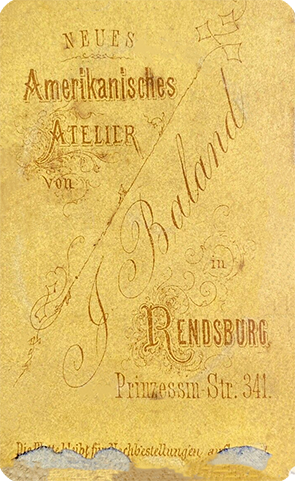 NEUES
Amerikanisches
ATELIER
von
J Baland
in
RENDSBURG,
Prinzessin-Str. 341.
Die Platte bleibt für Nachbestellungen